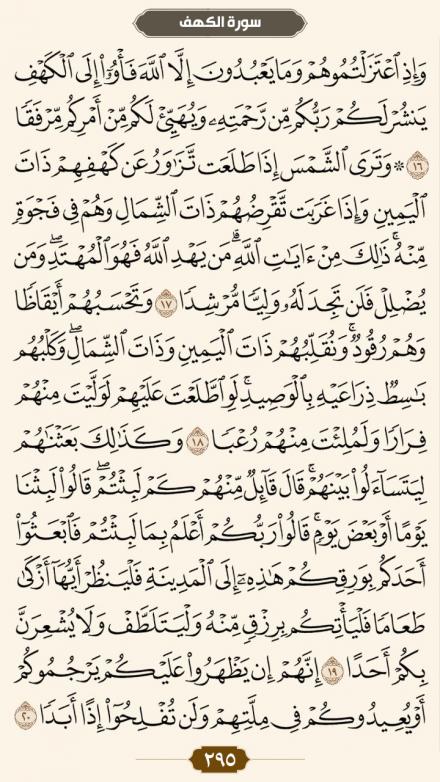 سورة الكهف
وَإِذِ ٱعۡتَزَلۡتُمُوهُمۡ وَمَا يَعۡبُدُونَ إِلَّا ٱللَّهَ فَأۡوُۥٓاْ إِلَى ٱلۡكَهۡفِ
يَنشُرۡ لَكُمۡ رَبُّكُم مِّن رَّحۡمَتِهِۦ وَيُهَيِّئۡ لَكُم مِّنۡ أَمۡرِكُم مِّرۡفَقٗا
١٦ ۞ وَتَرَى ٱلشَّمۡسَ إِذَا طَلَعَت تَّزَٰوَرُ عَن كَهۡفِهِمۡ ذَاتَ
ٱلۡيَمِينِ وَإِذَا غَرَبَت تَّقۡرِضُهُمۡ ذَاتَ ٱلشِّمَالِ وَهُمۡ فِي فَجۡوَةٖ
مِّنۡهُۚ ذَٰلِكَ مِنۡ ءَايَٰتِ ٱللَّهِۗ مَن يَهۡدِ ٱللَّهُ فَهُوَ ٱلۡمُهۡتَدِۖ وَمَن
يُضۡلِلۡ فَلَن تَجِدَ لَهُۥ وَلِيّٗا مُّرۡشِدٗا ١٧ وَتَحۡسَبُهُمۡ أَيۡقَاظٗا
وَهُمۡ رُقُودٞۚ وَنُقَلِّبُهُمۡ ذَاتَ ٱلۡيَمِينِ وَذَاتَ ٱلشِّمَالِۖ وَكَلۡبُهُم
بَٰسِطٞ ذِرَاعَيۡهِ بِٱلۡوَصِيدِۚ لَوِ ٱطَّلَعۡتَ عَلَيۡهِمۡ لَوَلَّيۡتَ مِنۡهُمۡ
فِرَارٗا وَلَمُلِئۡتَ مِنۡهُمۡ رُعۡبٗا ١٨ وَكَذَٰلِكَ بَعَثۡنَٰهُمۡ
لِيَتَسَآءَلُواْ بَيۡنَهُمۡۚ قَالَ قَآئِلٞ مِّنۡهُمۡ كَمۡ لَبِثۡتُمۡۖ قَالُواْ لَبِثۡنَا
يَوۡمًا أَوۡ بَعۡضَ يَوۡمٖۚ قَالُواْ رَبُّكُمۡ أَعۡلَمُ بِمَا لَبِثۡتُمۡ فَٱبۡعَثُوٓاْ
أَحَدَكُم بِوَرِقِكُمۡ هَٰذِهِۦٓ إِلَى ٱلۡمَدِينَةِ فَلۡيَنظُرۡ أَيُّهَآ أَزۡكَىٰ
طَعَامٗا فَلۡيَأۡتِكُم بِرِزۡقٖ مِّنۡهُ وَلۡيَتَلَطَّفۡ وَلَا يُشۡعِرَنَّ
بِكُمۡ أَحَدًا ١٩ إِنَّهُمۡ إِن يَظۡهَرُواْ عَلَيۡكُمۡ يَرۡجُمُوكُمۡ
أَوۡ يُعِيدُوكُمۡ فِي مِلَّتِهِمۡ وَلَن تُفۡلِحُوٓاْ إِذًا أَبَدٗا ٢٠
٢٩٥